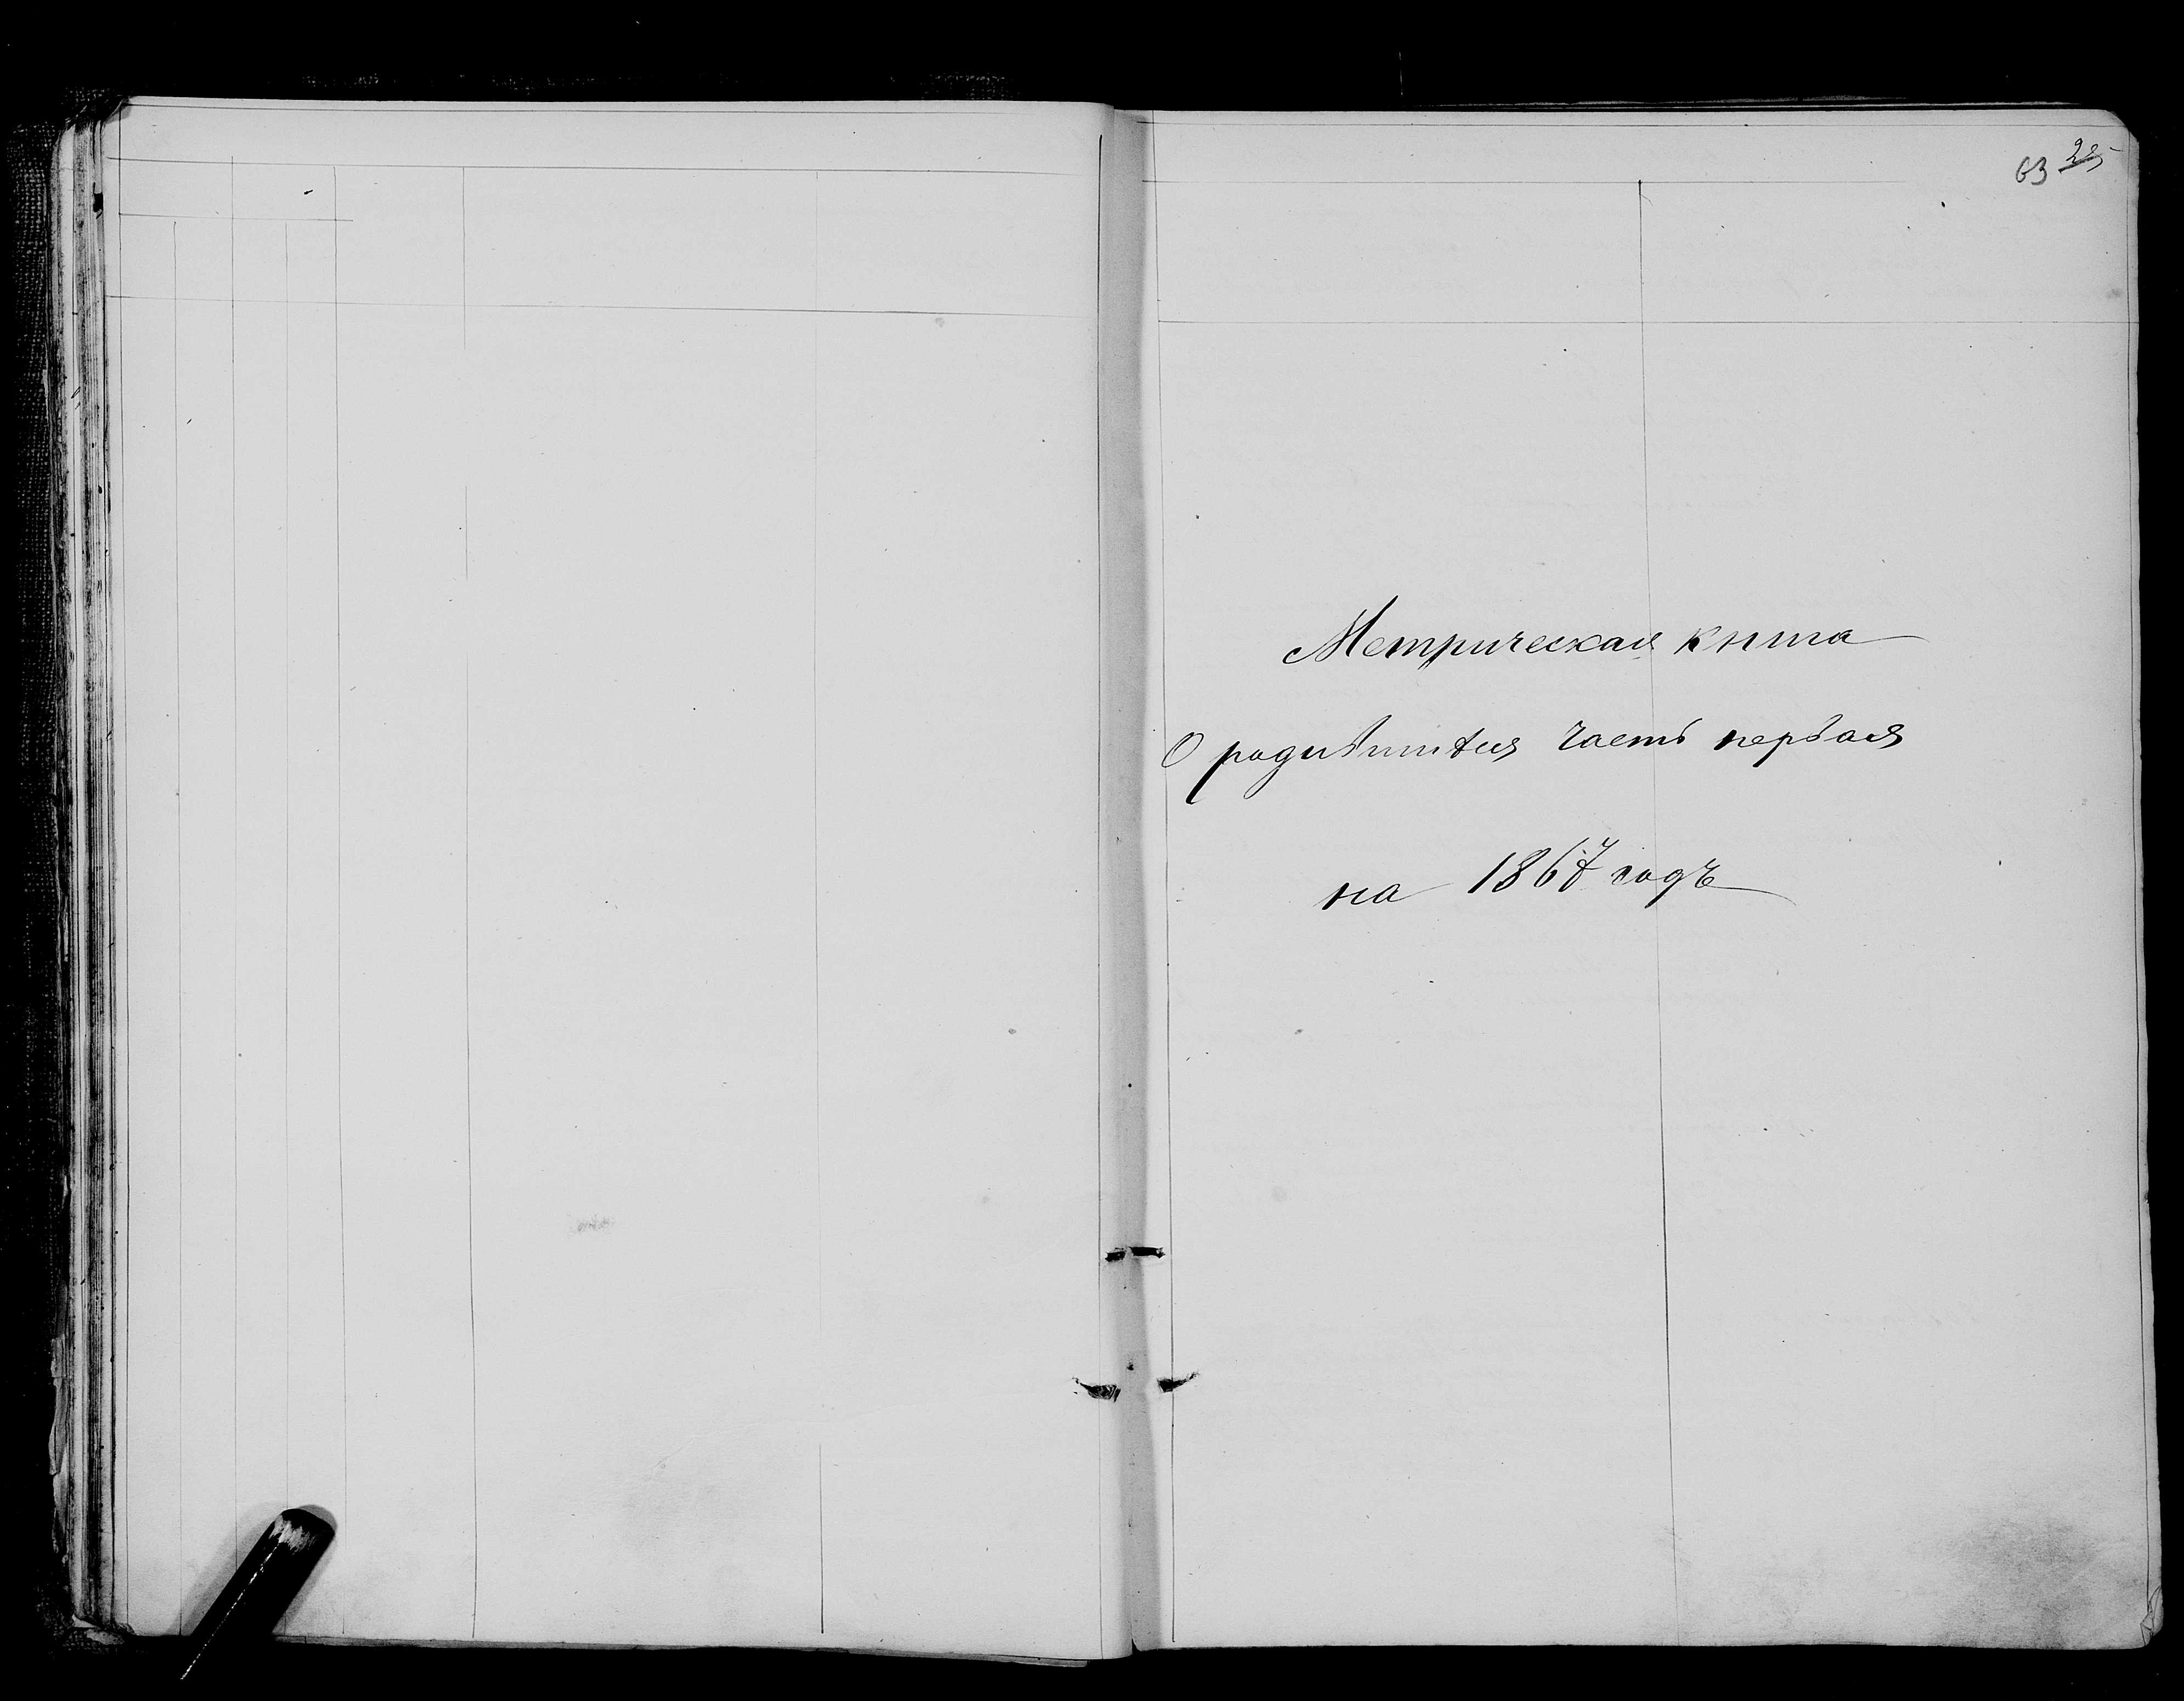 63 25
Метрическая книга
О родившихся часть первая
на 1867 годъ